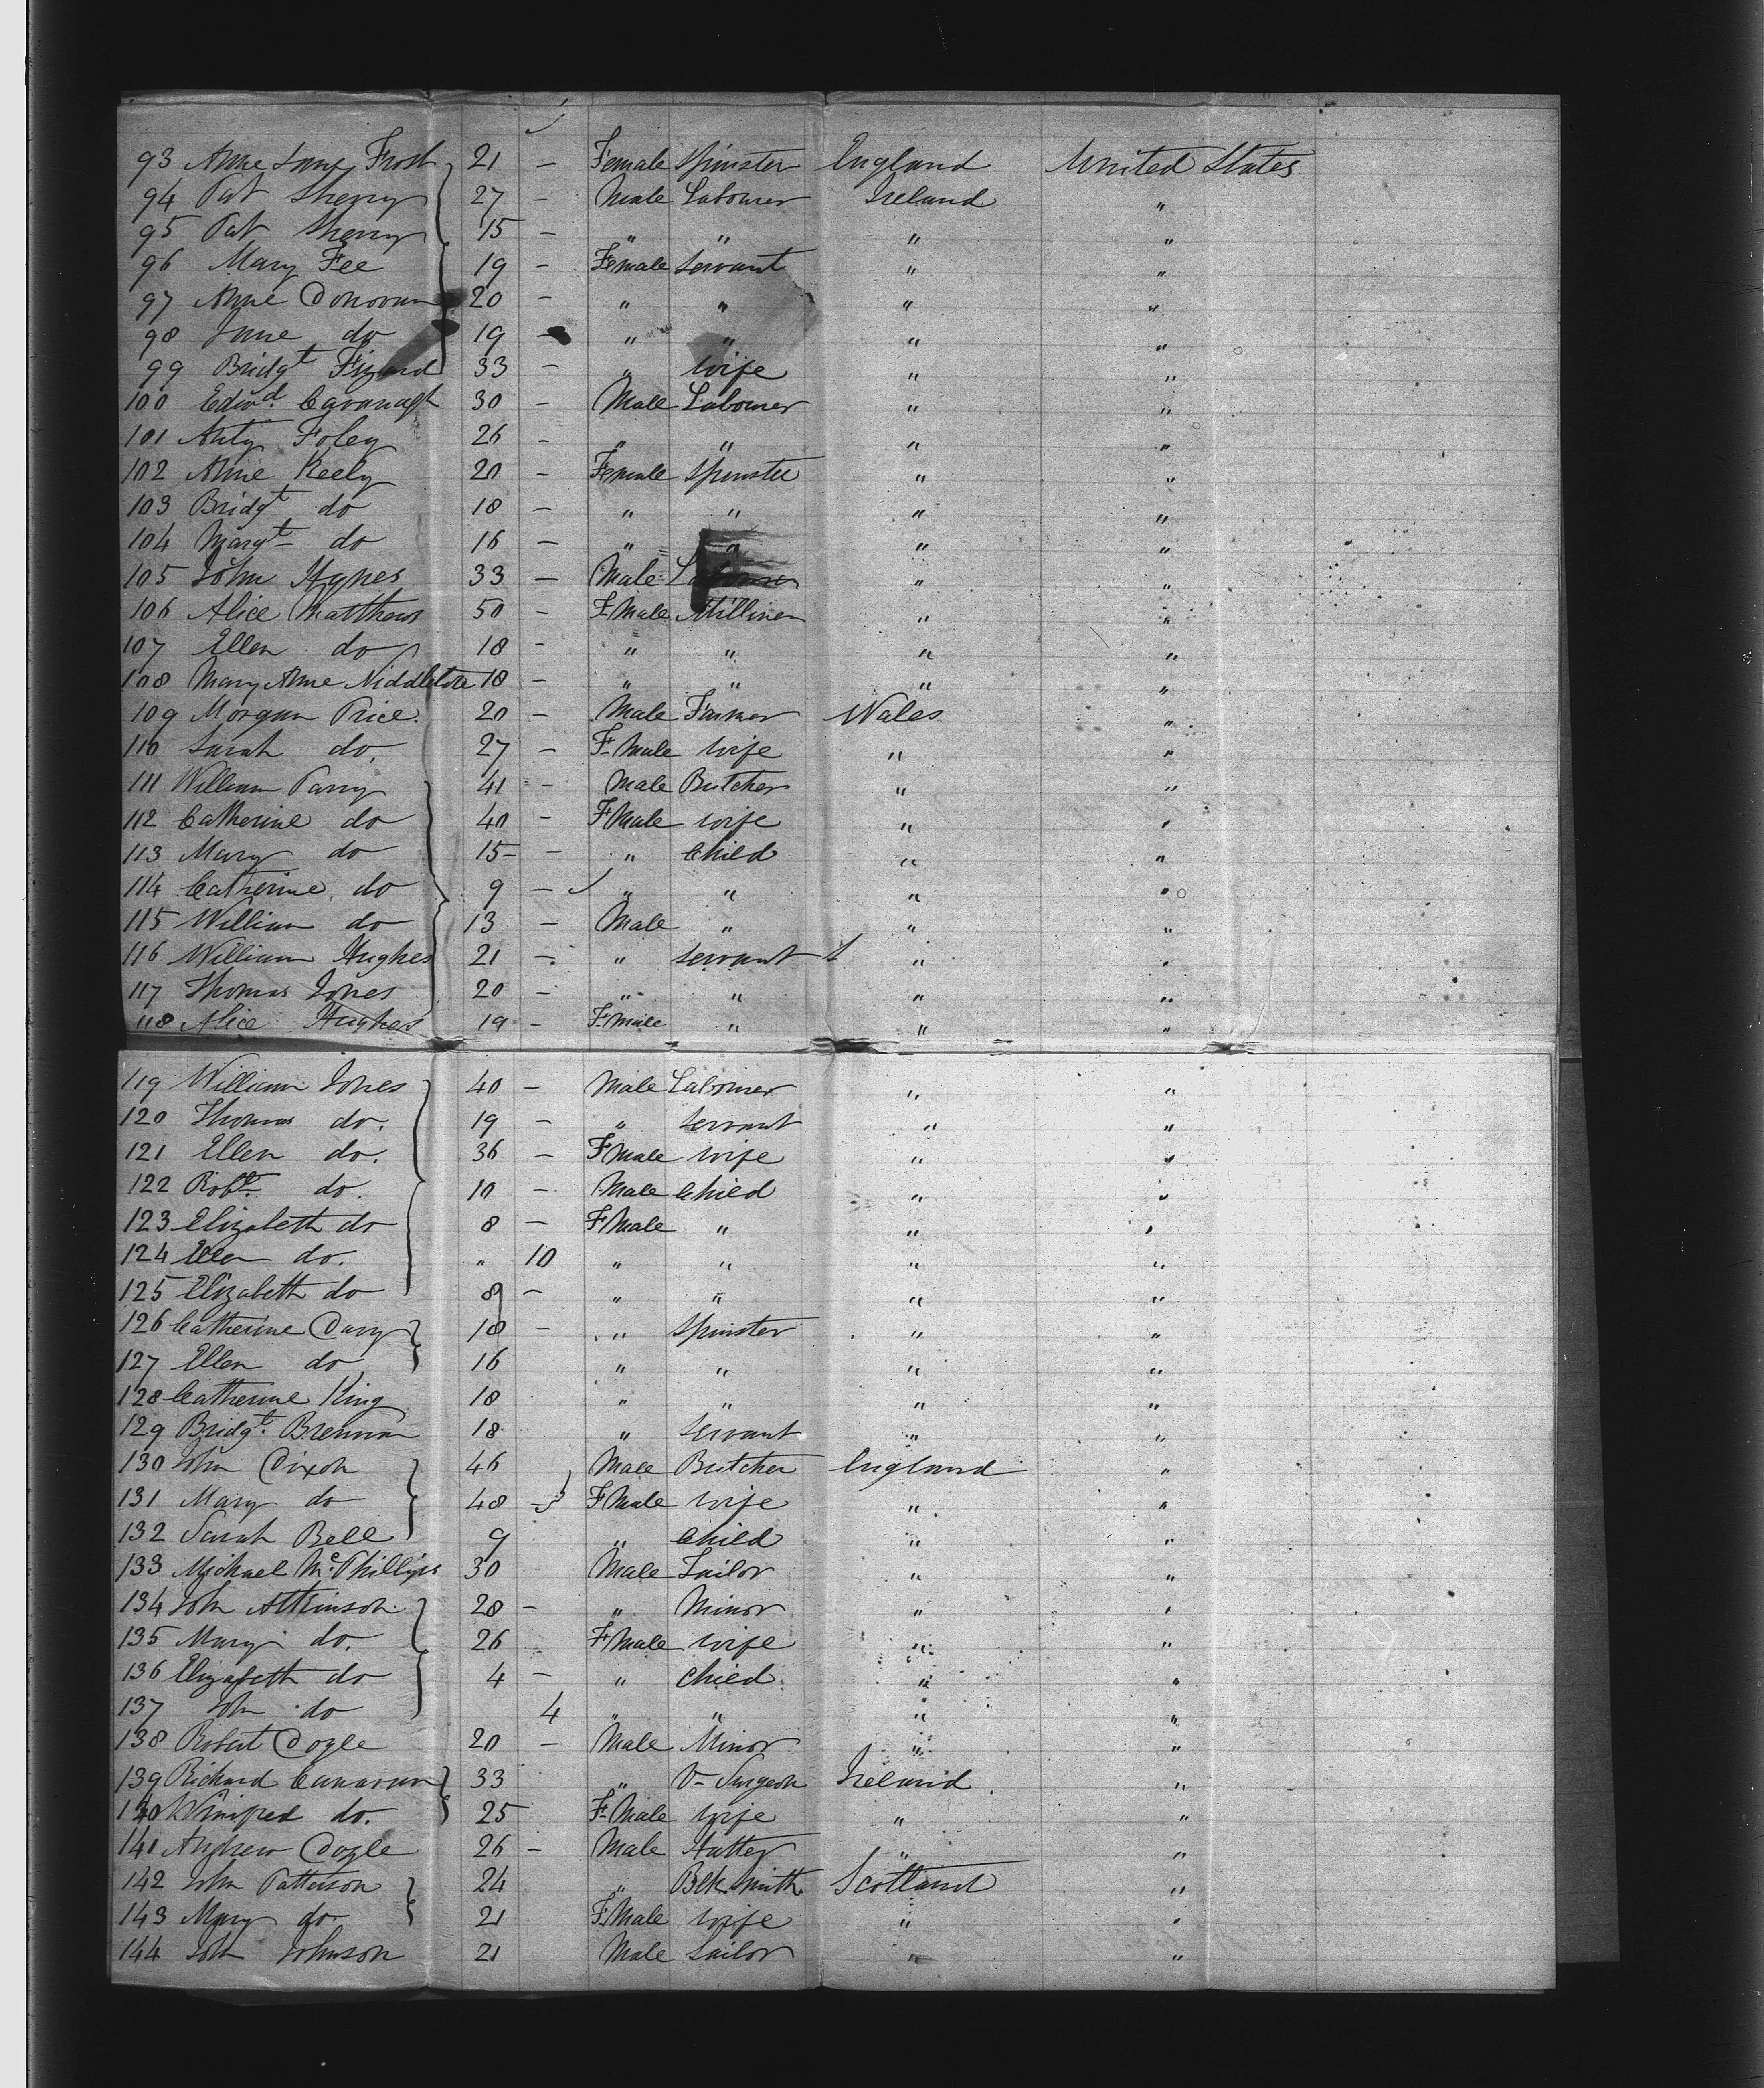 93 Anne Jane Frost 21 – Female Spinster England United States
94 Pat Sherry 27 – Male Labourer Ireland "
95 Pat Sherry 15 – " " " "
96 Mary Fee 19 – Female Servant " "
97 Anne Donovan 20 – " " " "
98 Jane do 19 – " " " "
99 Bridgt 33 – " wife " "
100 Edwd. Cavanagh 30 – Male Labourer " "
101 Anty Foley 26 – " " " "
102 Anne Keely 20 – Female Spinster " "
103 Bridgt do 18 – " " " "
104 Margt do 16 – " " " "
105 John Hynes 33 – Male Labourer " "
106 Alice Matthews 50 – F.Male Milliner " "
107 Ellen do 18 – " " " "
108 Mary Anne Niddletore 18 – " " " "
109 Morgan Price. 20 – Male Farmer Wales "
110 Sarah do. 27 – F.Male wife " "
111 William Parry 41 – Male Butcher " "
112 Catherine do 40 – F.Male wife " "
113 Mary do 15 – " Child " "
114 Catherine do 9 – " " " "
115 William do 13 – Male " " "
116 William Hughes 21 – " Servant " "
117 Thomas Jones 20 – " " " "
118 Alice Hughes 19 – F.Male " " "
119 William Jones 40 – Male Labourer " "
120 Thomas do. 19 – " Servant " "
121 Ellen do. 36 – F.Male wife " "
122 Robt. do. 10 – Male Child " "
123 Elizabeth do 8 – F.Male " " "
124 Ellen do. " 10 " " " "
125 Elizabeth do 8 – " " " "
126 Catherine Davy 18 – " Spinster " "
127 Ellen do 16 " " " "
128 Catherine King 18 " " " "
129 Bridgt. Brennan 18 " Servant " "
130 John Dixon 46 Male Butcher England "
131 Mary do 48 – F.Male wife " "
132 Sarah Bell 9 " Child " "
133 Michael McPhillips 30 Male Tailor " "
134 John Attkinson 28 – " Minor " "
135 Mary do. 26 F.Male wife " "
136 Elizabeth do 4 – " Child " "
137 John do 4 " " " "
138 Robert Dogle 20 – Male Minor " "
139 Richard Canavan 33 " V– Surgeon Ireland "
140 Winifred do. 25 F.Male wife " "
141 Andrew Dogle 26 – Male Hatter " "
142 John Patterson 24 " Blk. Smith Scotland "
143 Mary do 21 F.Male wife " "
144 John Johnson 21 Male Sailor " "